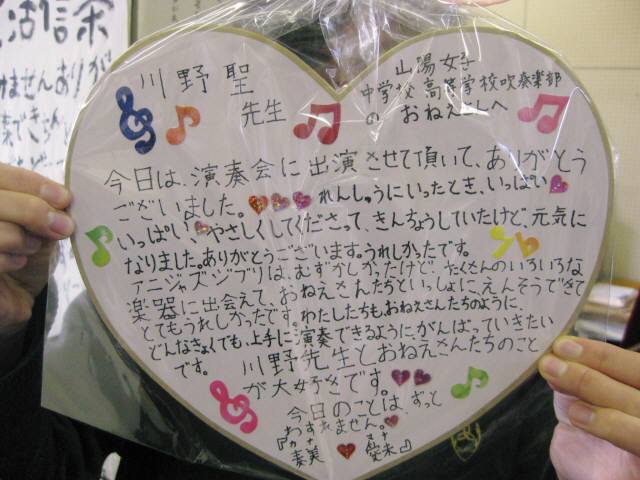 川野聖
先生
山陽女子
中学校高等学校吹奏楽部
の おねえさんへ
今日は、演奏会に出演させて頂いて、ありがとう
ございました。れんしゅうにいったとき、いっぱい
いっぱい、やさしくしてくださって、きんちょうしていたけど、元気に
なりました。ありがとうございます。うれしかったです。
アニジャズジブリは、むずかしかったけど、たくさんのいろいろな
楽器に出会えて、おねえさんたちといっしょに、えんそうできて
とてもうれしかったです。わたしたちも、おねえさんたちのように
どんなきょくでも、上手に演奏できるようにがんばっていきたい
です。
川野先生とおねえさんたちのこと
が大好きです。
今日のことは、ずっと
わすれません。